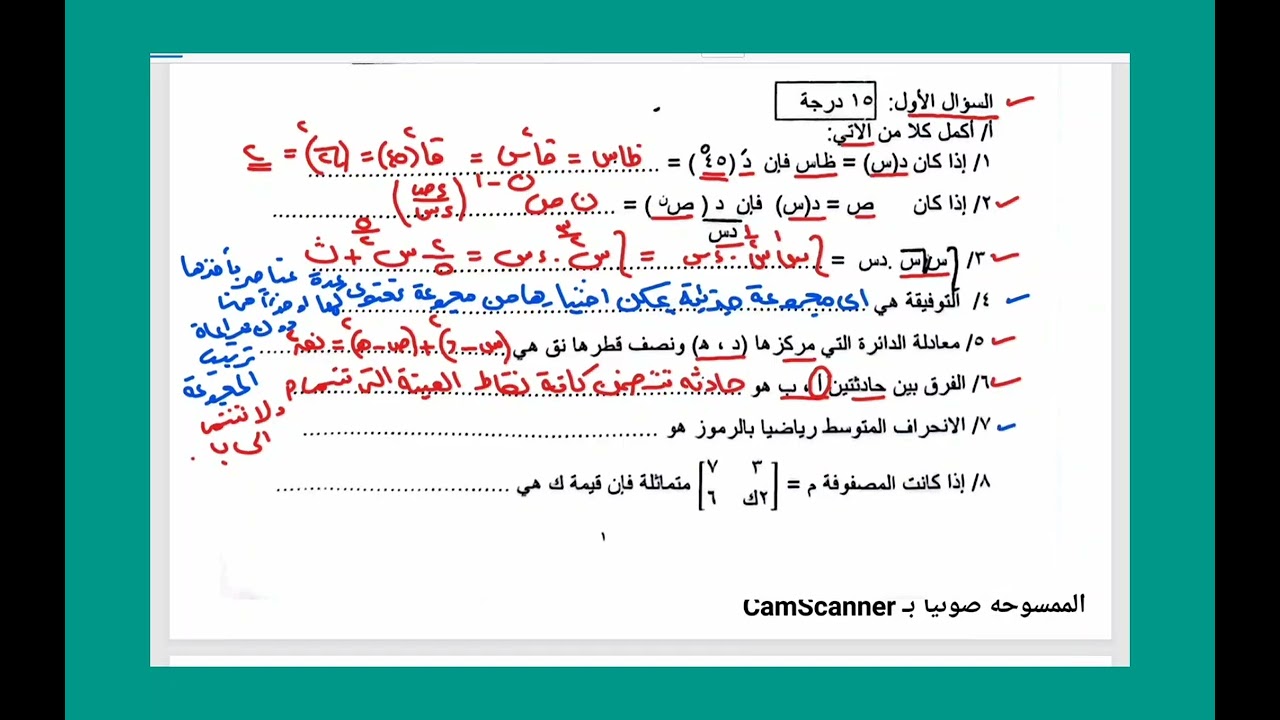 السؤال الأول: ١٥ درجة
أ/ أكمل كلا من الآتي:
١/ إذا كان د(س) = ظاس فإن دَ (٤٥°) = ظاس = قا٢س = قا٢(٤٥) = (√٢)٢ = ٢
٢/ إذا كان ص = د(س) فإن د (صن) / دس = ن صن-١ (ءص/ءس)
٣/ ∫س√س .دس = ∫س١س١/٢ .ءس = ∫س٣/٢ .ءس = ٢/٥ س٥/٢ + ث
٤/ التوفيقة هي اى مجموعة جزئية يمكن اختيارها من مجموعة تحتوى عدة عناصر بأخذها كلها او جزءاً منها دون مراعاة ترتيب المجموعة
٥/ معادلة الدائرة التي مركزها (د ، ه) ونصف قطرها نق هي (س-د)٢+(ص-ه)٢ = نق٢
٦/ الفرق بين حادثتين أ ، ب هو حادثه تتضمن كافة نقاط العينة التى تنتمى ل أ ولا تنتمى الى ب .
٧/ الانحراف المتوسط رياضيا بالرموز هو
٨/ إذا كانت المصفوفة م = [٣ ٧ ٢ك ٦] متماثلة فإن قيمة ك هي
١
الممسوحة ضوئيا بـ CamScanner